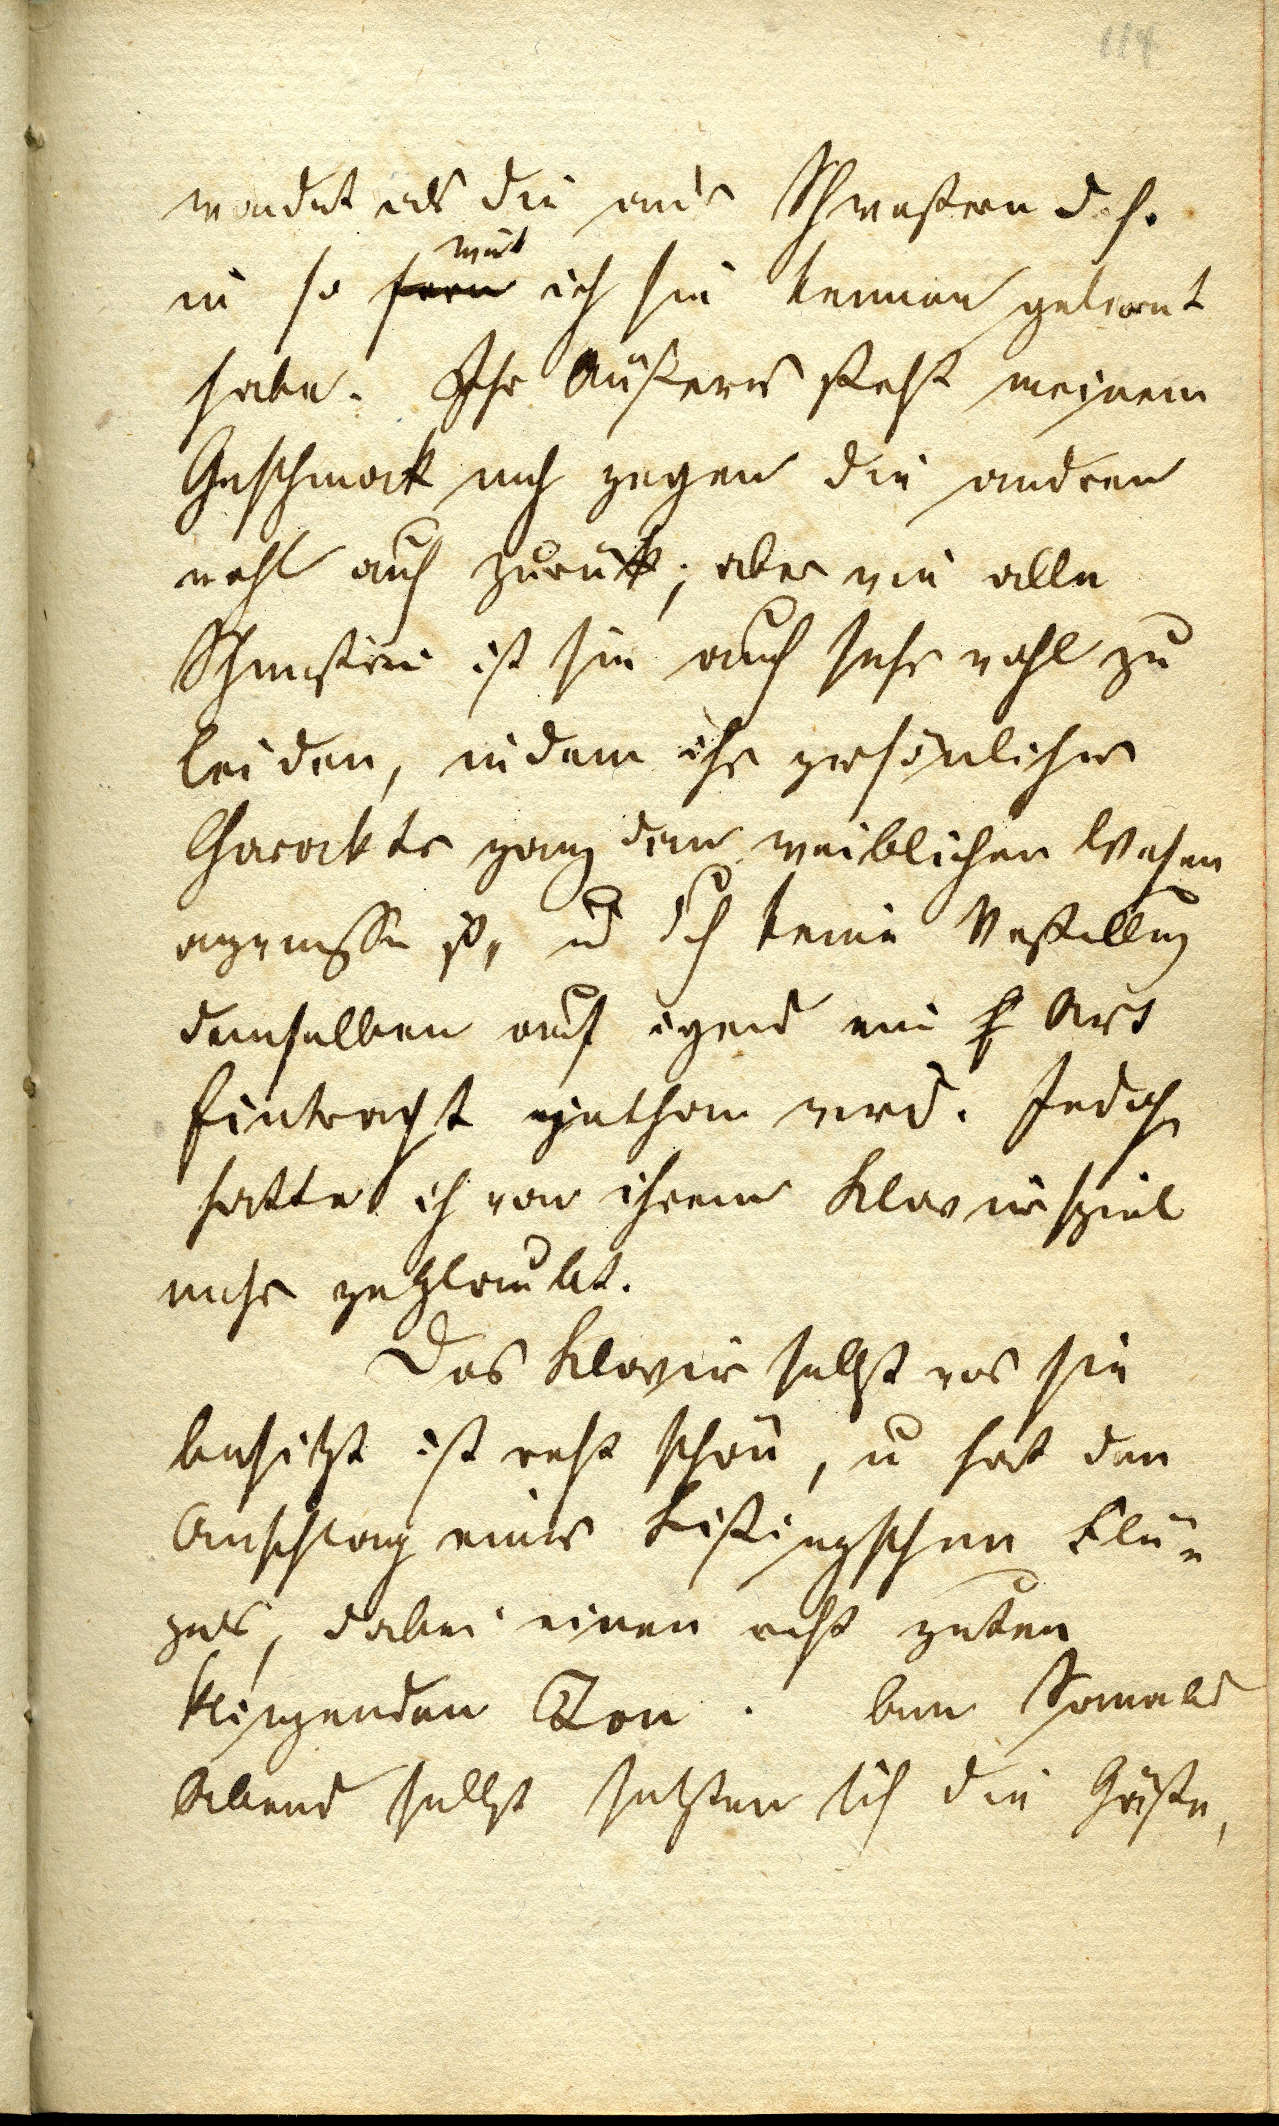 114
wandert als die and Schwestern d. h.
in so fern weit ich sie kennen gelernt
habe. Ihr Äußeres steht meinem
Geschmack nach gegen die andren
wohl auch zurük; aber wie alle
Schwestern ist sie auch sehr wohl zu
leiden, indem ihr persönlicher
Charackter ganz dem weiblichen Wesen
angemessen ist, u dch keine Vestellung
demselben auf irgend eine Art
Eintracht gethan werd. Jedoch
hatte ich von ihrem Klavierspiel
mehr geglaubt.
Das Klavier selbst was sie
besitzt ist recht schön, u hat den
Anschlag eines Kistingschen Flü-
gels, dabei einen recht guten
klingenden Ton. Am
Abend selbst setzten sich die Gäste,